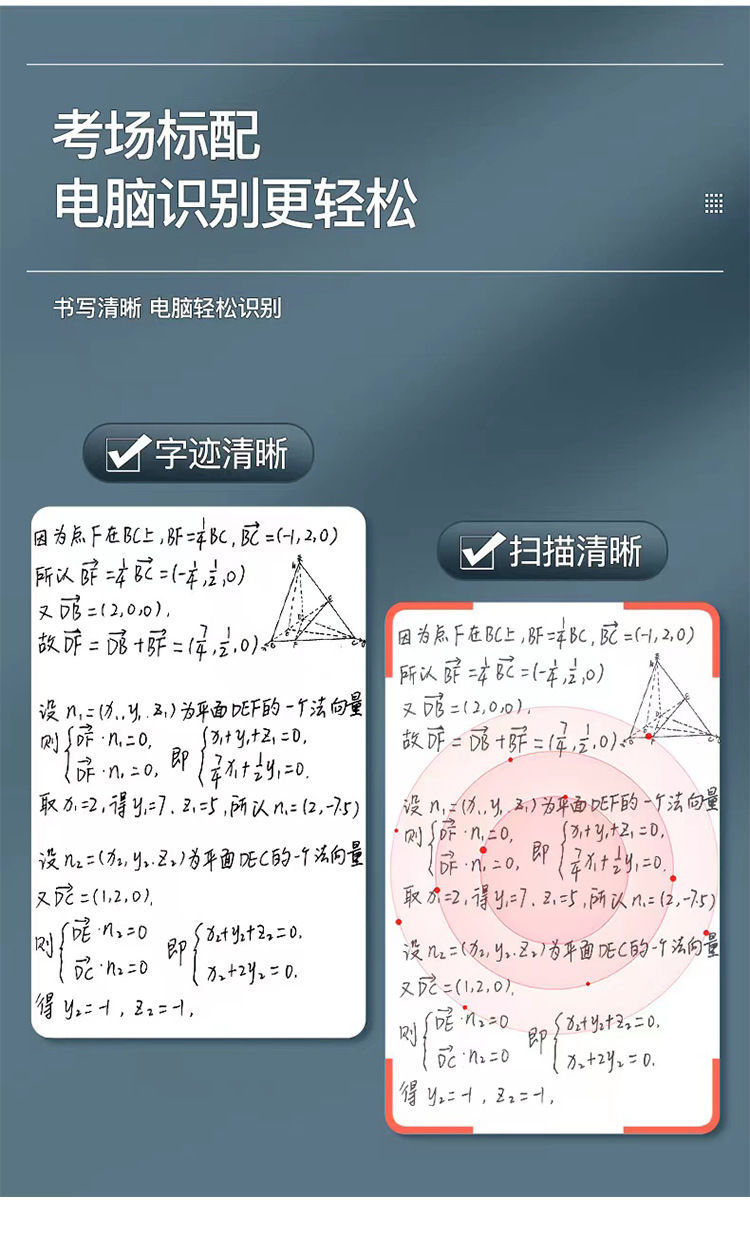 考场标配
电脑识别更轻松
书写清晰 电脑轻松识别
字迹清晰
因为点F在BC上,BF=¼BC,BC→=(-1,2,0)
所以BF→=¼BC→=(-¼,½,0)
又DB→=(2,0,0),
故DF→=DB→+BF→=(7/4,½,0)
设n₁=(x₁,y₁,z₁)为平面DEF的一个法向量
则{DF→·n₁=0, 即{x₁+y₁+z₁=0,
DF→·n₁=0, 7/4x₁+½y₁=0.
取x₁=2,得y₁=7、z₁=5,所以n₁=(2,-7.5)
设n₂=(x₂,y₂.z₂)为平面DEC的一个法向量
又DC→=(1,2,0),
则{DE→·n₂=0 即{x₂+y₂+z₂=0,
DC→·n₂=0 x₂+2y₂=0.
得y₂=-1,z₂=-1,
扫描清晰
因为点F在BC上,BF=¼BC,BC→=(-1,2,0)
所以BF→=¼BC→=(-¼,½,0)
又DB→=(2,0,0),
故DF→=DB→+BF→=(7/4,½,0)
设n₁=(x₁,y₁,z₁)为平面DEF的一个法向量
则{DF→·n₁=0, 即{x₁+y₁+z₁=0,
DF→·n₁=0, 7/4x₁+½y₁=0.
取x₁=2,得y₁=7、z₁=5,所以n₁=(2,-7.5)
设n₂=(x₂,y₂.z₂)为平面DEC的一个法向量
又DC→=(1,2,0),
则{DE→·n₂=0 即{x₂+y₂+z₂=0,
DC→·n₂=0 x₂+2y₂=0.
得y₂=-1,z₂=-1,